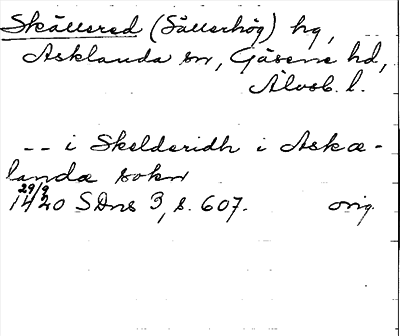 Skällered (Sällerhög) hg,
Asklanda sn, Gäsene hd,
Älvsb. l.
-- i Skelderidh i Askæ-
landæ sokn
29/9
1420 SDns 3, s. 607. orig.